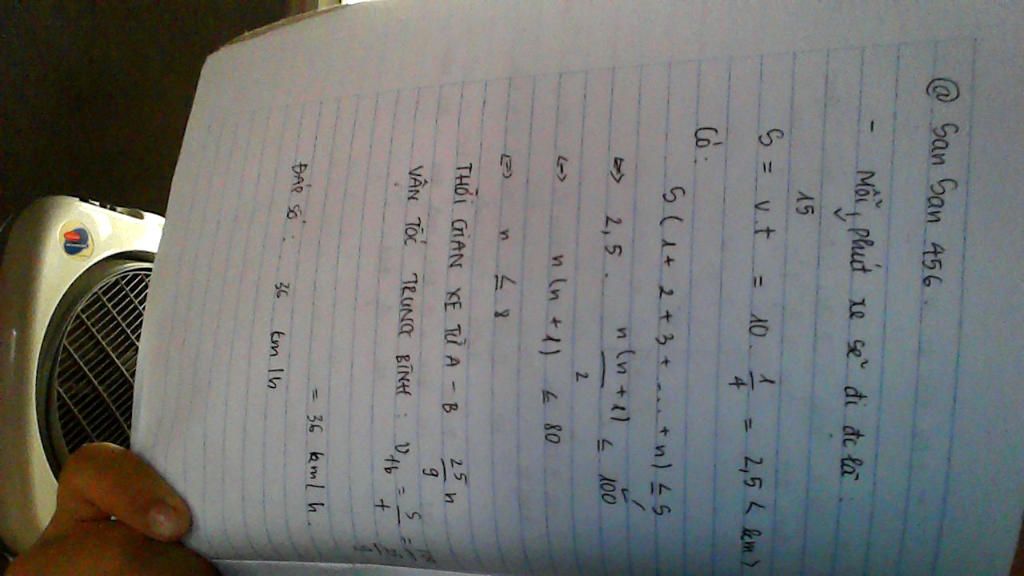 @ San San A56.
- Mỗi, phút xe sẽ đi đc là:
15
S = v.t = 10. 1/4 = 2,5 < (km)
Có:
S(1+2+3+....+n) ≤ S
<=> 2,5. n(n+1)/2 ≤ 100
<=> n(n+1) ≤ 80
<=> n ≤ 8
THỜI GIAN XE TỪ A - B 25/9 h
VẬN TỐC TRUNG BÌNH: Vtb = S/t =
= 36 km/h.
ĐÁP SỐ: 36 km/h